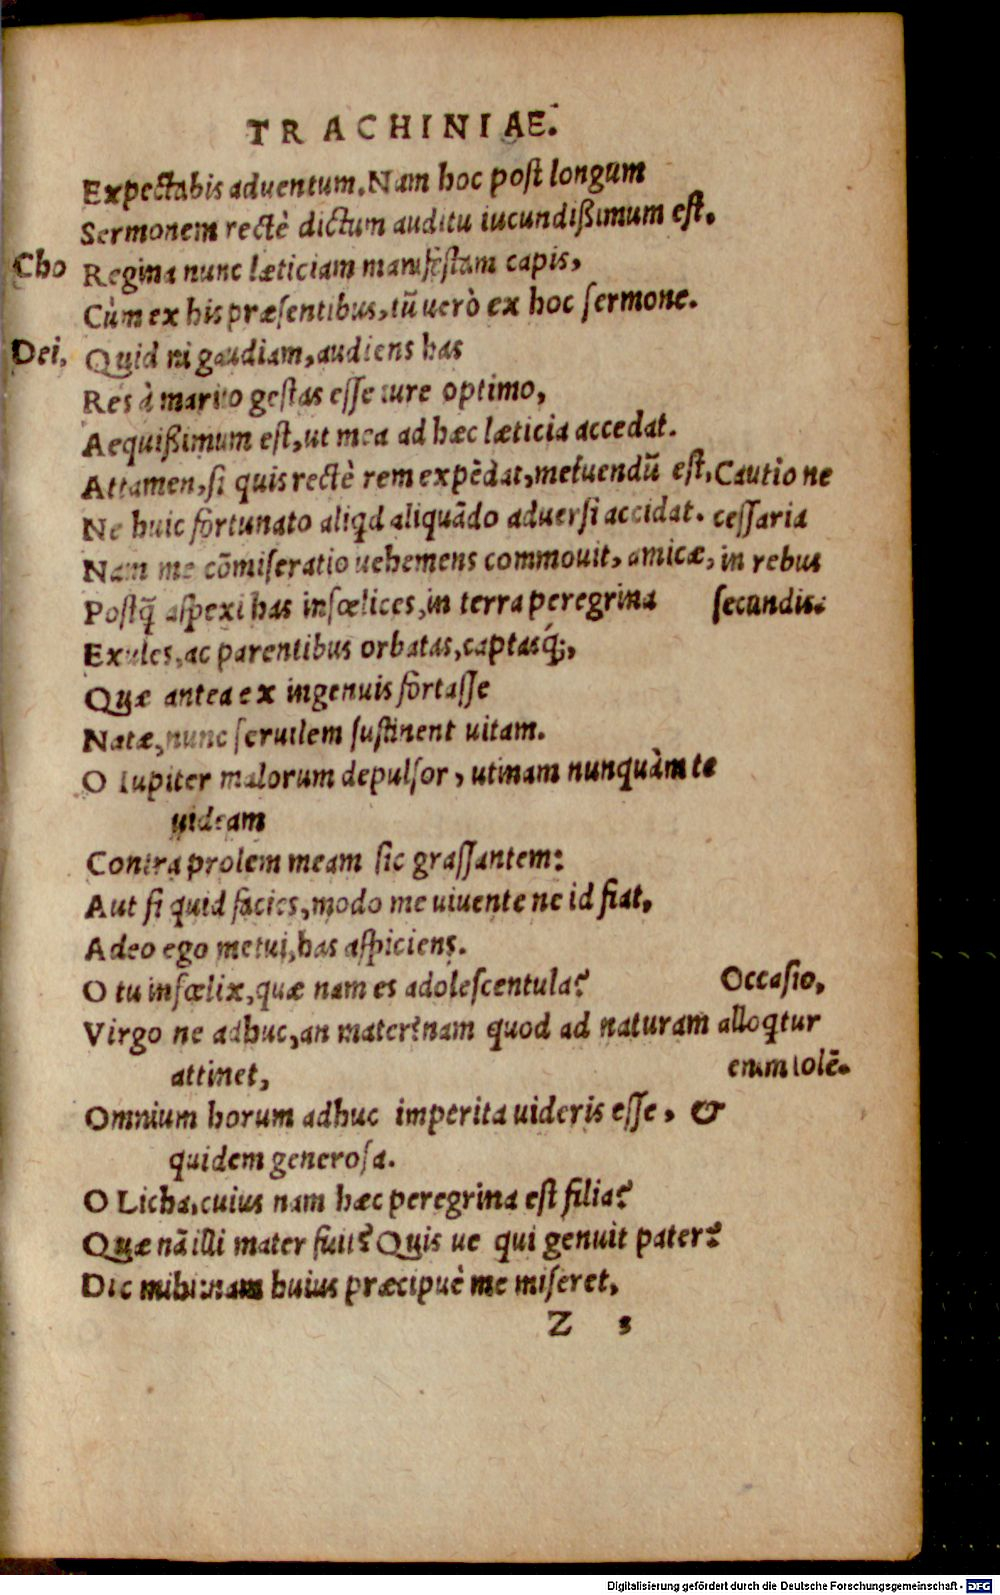 TRACHINIAE.
Expectabis aduentum. Nam hoc post longum
Sermonem rectè dictum auditu iucundißimum est.
Cho Regina nunc læticiam manifestam capis,
Cùm ex his præsentibus, tũ uerò ex hoc sermone.
Dei. Quid ni gaudiam, audiens has
Res à marito gestas esse iure optimo,
Aequißimum est, ut mea ad hæc læticia accedat.
Attamen, si quis rectè rem expẽdat, metuendũ est, Cautio ne
Ne huic fortunato aliqd aliquãdo aduersi accidat. cessaria
Nam me cõmiseratio uehemens commouit, amicæ, in rebus
Postq̃ aspexi has infœlices, in terra peregrina secundis.
Exules, ac parentibus orbatas, captasq́;,
Quæ antea ex ingenuis fortasse
Natæ, nunc seruilem sustinent uitam.
O Iupiter malorum depulsor, utinam nunquàm te
uideam
Contra prolem meam sic grassantem:
Aut si quid facies, modo me uiuente ne id fiat,
Adeo ego metui, has aspiciens.
O tu infœlix, quæ nam es adolescentula? Occasio,
Virgo ne adhuc, an mater? nam quod ad naturam alloq̃tur
attinet, enim Iolẽ.
Omnium horum adhuc imperita uideris esse, &
quidem generosa.
O Licha, cuius nam hæc peregrina est filia?
Quæ nã illi mater fuit? Quis ue qui genuit pater?
Dic mihi: nam huius præcipuè me miseret,
Z 3
Digitalisierung gefördert durch die Deutsche Forschungsgemeinschaft - DFG